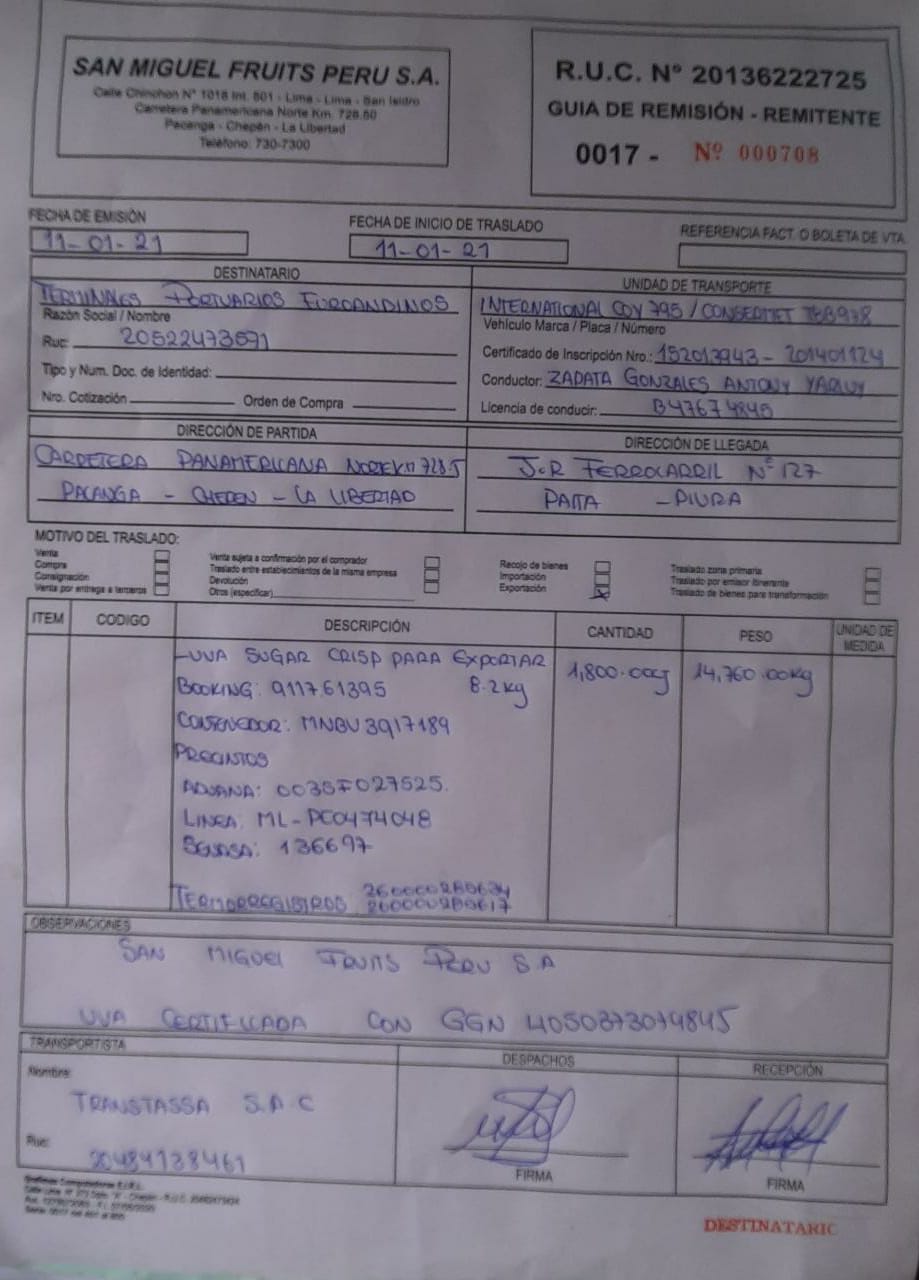 SAN MIGUEL FRUITS PERU S.A.
Calle Chinchon N° 1018 Int. 601 - Lima - Lima - San Isidro
Carretera Panamericana Norte Km. 728.50
Pacanga - Chepén - La Libertad
Teléfono: 730-7300
R.U.C. N° 20136222725
GUIA DE REMISIÓN - REMITENTE
0017 - Nº 000708
FECHA DE EMISIÓN
11-01-21
FECHA DE INICIO DE TRASLADO
11-01-21
REFERENCIA FACT. O BOLETA DE VTA.
DESTINATARIO
TERMINALES PORTUARIOS EUROANDINOS
Razón Social / Nombre
Ruc: 20522473571
Tipo y Num. Doc. de Identidad:
Nro. Cotización Orden de Compra
UNIDAD DE TRANSPORTE
INTERNATIONAL COY 795 /
Vehículo Marca / Placa / Número
Certificado de Inscripción Nro.: 152013943 - 201401124
Conductor: ZAPATA GONZALES ANTONY
Licencia de conducir: B47674845
DIRECCIÓN DE PARTIDA
CARRETERA PANAMERICANA NORTE KM 728.5
PACANGA - CHEPEN - LA LIBERTAD
DIRECCIÓN DE LLEGADA
JR FERROCARRIL N° 127
PAITA - PIURA
MOTIVO DEL TRASLADO:
Venta
Compra
Consignación
Venta por entrega a terceros
Venta sujeta a confirmación por el comprador
Traslado entre establecimientos de la misma empresa
Devolución
Otros (especificar)
Recojo de bienes
Importación
Exportación
Traslado zona primaria
Traslado por emisor itinerante
Traslado de bienes para transformación
ITEM CODIGO DESCRIPCIÓN CANTIDAD PESO UNIDAD DE MEDIDA
- UVA SUGAR CRISP PARA EXPORTAR 1,800.00 14,760.00kg
BOOKING: 911761395 8.2kg
CONTENEDOR: MNBU 3917189
PRECINTOS
ADUANA: 0035F027525.
LINEA: ML-PE0474048
SENASA: 136697
TERMOREGISTROS
OBSERVACIONES
SAN MIGUEL FRUITS PERU S.A
UVA CERTIFICADA CON GGN 4050373074845
TRANSPORTISTA
Nombre:
TRANSTASSA S.A.C
Ruc:
20484138461
DESPACHOS
FIRMA
RECEPCIÓN
FIRMA
DESTINATARIO